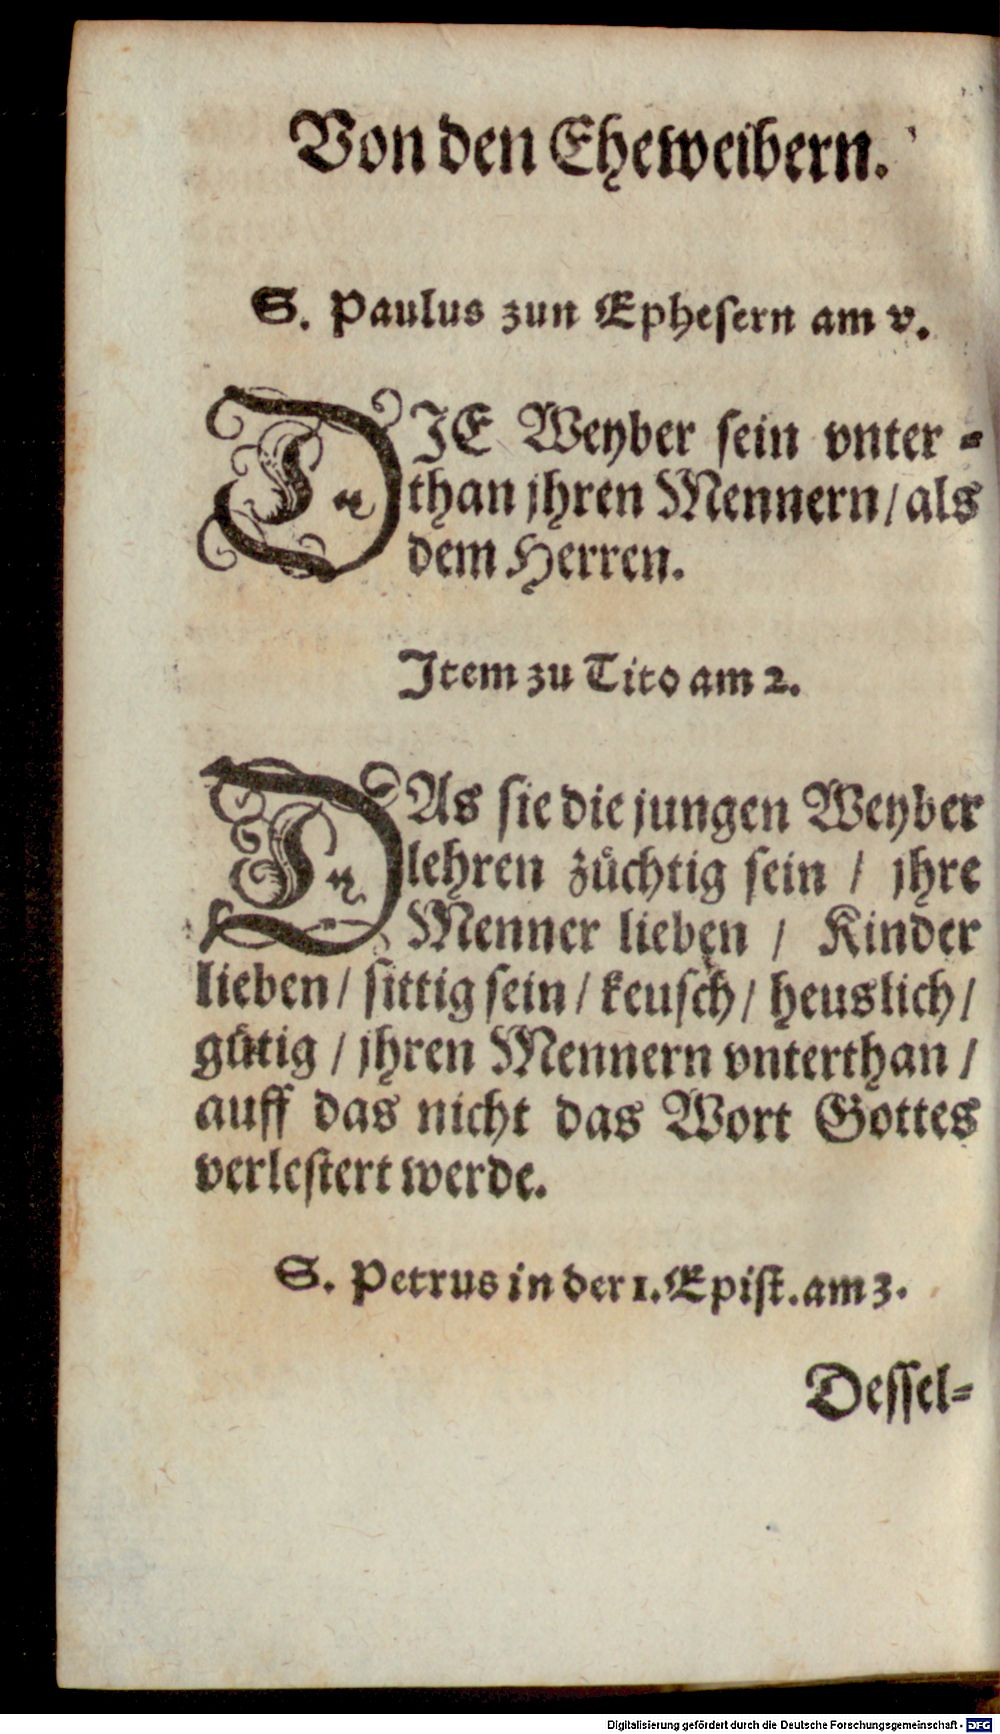 Von den Eheweibern.
S. Paulus zun Ephesern am v.
DIE Weyber sein vnter-
than jhren Mennern/ als
dem Herren.
Item zu Tito am 2.
DAs sie die jungen Weyber
lehren züchtig sein / jhre
Menner lieben / Kinder
lieben/ sittig sein/ keusch/ heuslich/
gütig / jhren Mennern vnterthan /
auff das nicht das Wort Gottes
verlestert werde.
S. Petrus in der 1. Epist. am 3.
Dessel-
Digitalisierung gefördert durch die Deutsche Forschungsgemeinschaft - DFG